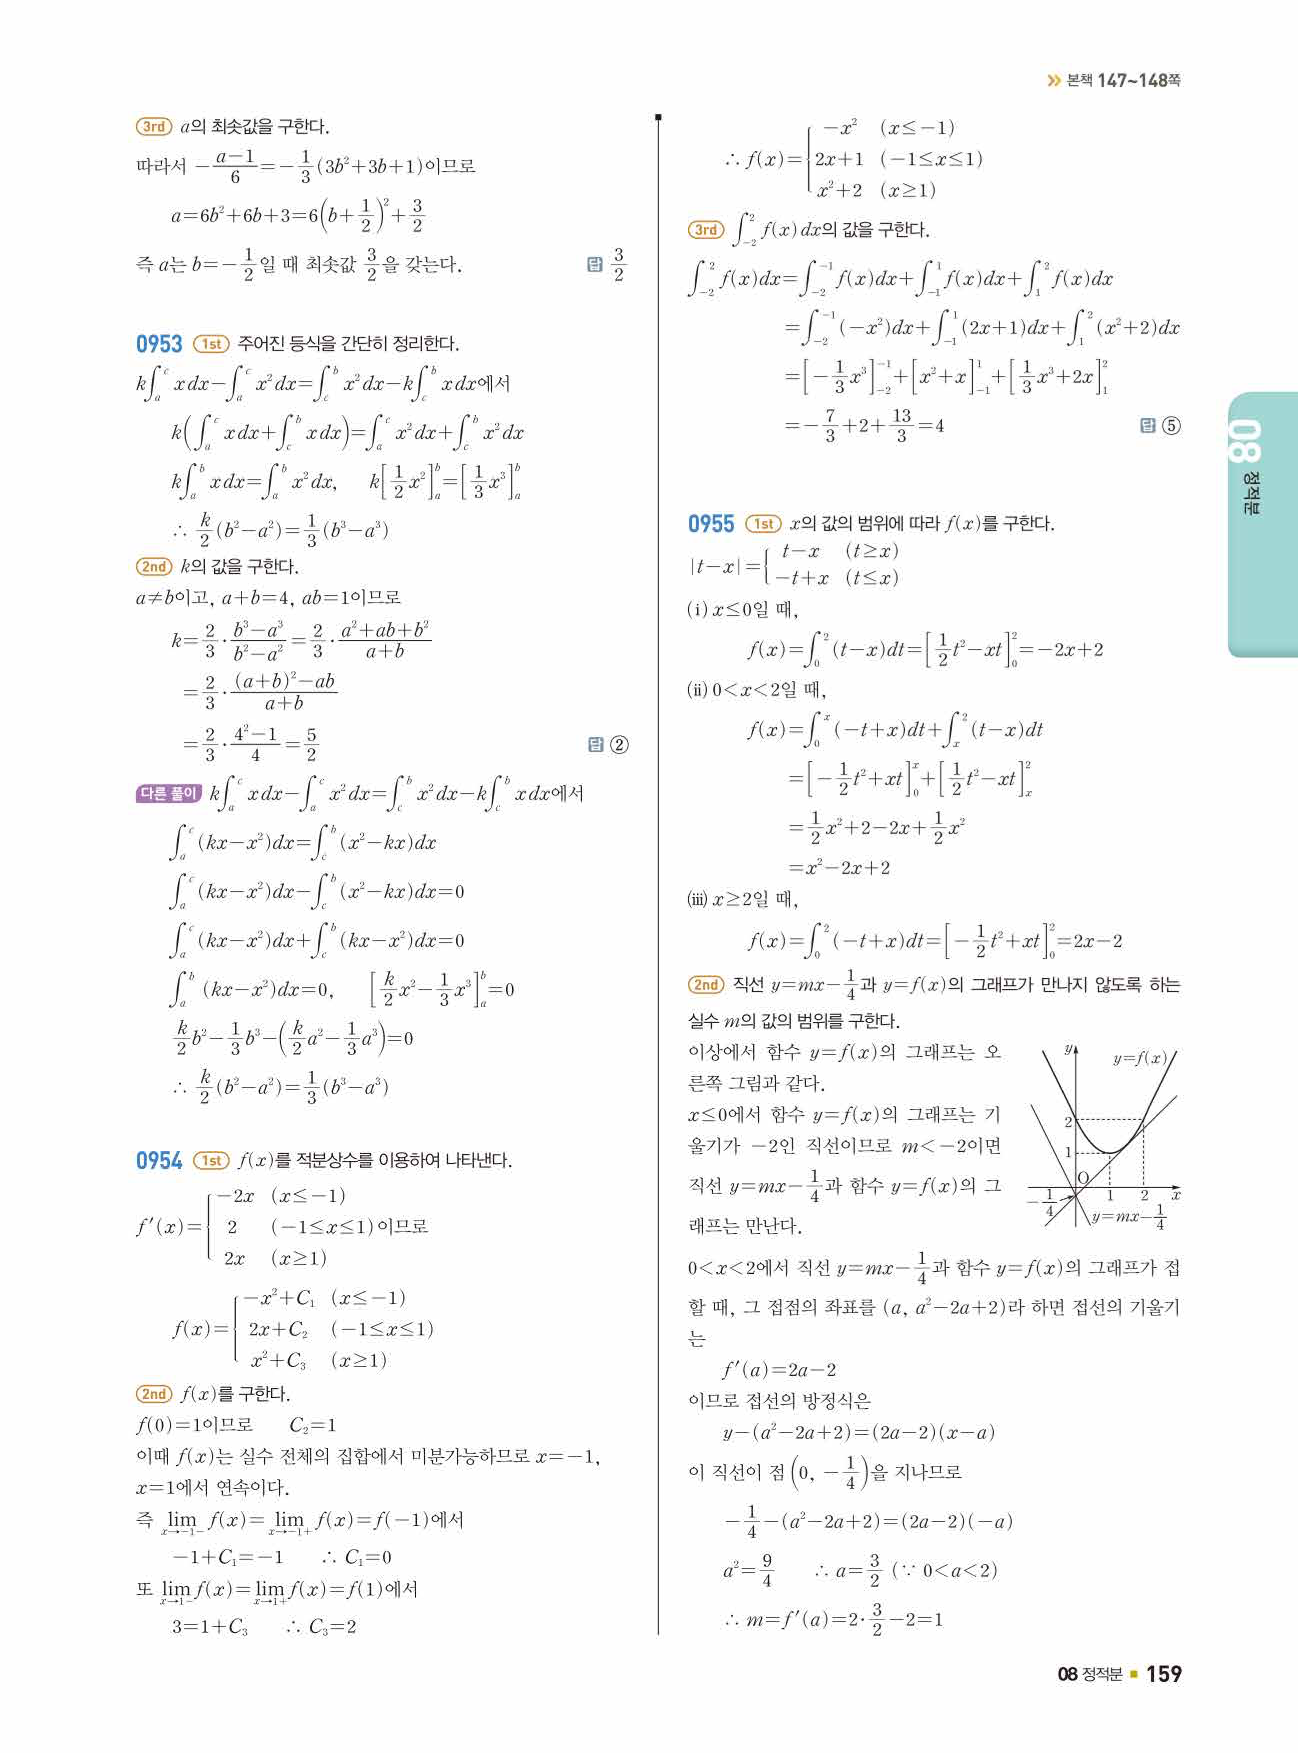 본책 147~148쪽
3rd a의 최솟값을 구한다.
따라서 -\frac{a-1}{6}=-\frac{1}{3}(3b²+3b+1)이므로
a=6b²+6b+3=6(b+\frac{1}{2})²+\frac{3}{2}
즉 a는 b=-\frac{1}{2}일 때 최솟값 \frac{3}{2}을 갖는다. 답 \frac{3}{2}
0953 1st 주어진 등식을 간단히 정리한다.
k∫_a^c xdx-∫_a^c x²dx=∫_c^b x²dx-k∫_c^b xdx에서
k(∫_a^c xdx+∫_c^b xdx)=∫_a^c x²dx+∫_c^b x²dx
k∫_a^b xdx=∫_a^b x²dx, k[\frac{1}{2}x²]_a^b=[\frac{1}{3}x³]_a^b
∴ \frac{k}{2}(b²-a²)=\frac{1}{3}(b³-a³)
2nd k의 값을 구한다.
a≠b이고, a+b=4, ab=1이므로
k=\frac{2}{3}·\frac{b³-a³}{b²-a²}=\frac{2}{3}·\frac{a²+ab+b²}{a+b}
=\frac{2}{3}·\frac{(a+b)²-ab}{a+b}
=\frac{2}{3}·\frac{4²-1}{4}=\frac{5}{2} 답 ②
다른 풀이 k∫_a^c xdx-∫_a^c x²dx=∫_c^b x²dx-k∫_c^b xdx에서
∫_a^c (kx-x²)dx=∫_c^b (x²-kx)dx
∫_a^c (kx-x²)dx-∫_c^b (x²-kx)dx=0
∫_a^c (kx-x²)dx+∫_c^b (kx-x²)dx=0
∫_a^b (kx-x²)dx=0, [\frac{k}{2}x²-\frac{1}{3}x³]_a^b=0
\frac{k}{2}b²-\frac{1}{3}b³-(\frac{k}{2}a²-\frac{1}{3}a³)=0
∴ \frac{k}{2}(b²-a²)=\frac{1}{3}(b³-a³)
0954 1st f(x)를 적분상수를 이용하여 나타낸다.
-2x (x≤-1)
f′(x)={ 2 (-1≤x≤1)이므로
2x (x≥1)
-x²+C₁ (x≤-1)
f(x)={ 2x+C₂ (-1≤x≤1)
x²+C₃ (x≥1)
2nd f(x)를 구한다.
f(0)=1이므로 C₂=1
이때 f(x)는 실수 전체의 집합에서 미분가능하므로 x=-1,
x=1에서 연속이다.
즉 lim_{x→-1-} f(x)=lim_{x→-1+} f(x)=f(-1)에서
-1+C₁=-1 ∴ C₁=0
또 lim_{x→1-} f(x)=lim_{x→1+} f(x)=f(1)에서
3=1+C₃ ∴ C₃=2
-x² (x≤-1)
∴ f(x)={ 2x+1 (-1≤x≤1)
x²+2 (x≥1)
3rd ∫_{-2}^2 f(x)dx의 값을 구한다.
∫_{-2}^2 f(x)dx=∫_{-2}^{-1} f(x)dx+∫_{-1}^1 f(x)dx+∫_1^2 f(x)dx
=∫_{-2}^{-1} (-x²)dx+∫_{-1}^1 (2x+1)dx+∫_1^2 (x²+2)dx
=[-\frac{1}{3}x³]_{-2}^{-1}+[x²+x]_{-1}^1+[\frac{1}{3}x³+2x]_1^2
=-\frac{7}{3}+2+\frac{13}{3}=4 답 ⑤
0955 1st x의 값의 범위에 따라 f(x)를 구한다.
|t-x|={ t-x (t≥x)
-t+x (t≤x)
(i) x≤0일 때,
f(x)=∫_0^2 (t-x)dt=[\frac{1}{2}t²-xt]_0^2=-2x+2
(ii) 0<x<2일 때,
f(x)=∫_0^x (-t+x)dt+∫_x^2 (t-x)dt
=[-\frac{1}{2}t²+xt]_0^x+[\frac{1}{2}t²-xt]_x^2
=\frac{1}{2}x²+2-2x+\frac{1}{2}x²
=x²-2x+2
(iii) x≥2일 때,
f(x)=∫_0^2 (-t+x)dt=[-\frac{1}{2}t²+xt]_0^2=2x-2
2nd 직선 y=mx-\frac{1}{4}과 y=f(x)의 그래프가 만나지 않도록 하는
실수 m의 값의 범위를 구한다.
이상에서 함수 y=f(x)의 그래프는 오
른쪽 그림과 같다.
x≤0에서 함수 y=f(x)의 그래프는 기
울기가 -2인 직선이므로 m<-2이면
직선 y=mx-\frac{1}{4}과 함수 y=f(x)의 그
래프는 만난다.
y y=f(x)
2
1
O
-\frac{1}{4} 1 2 x
y=mx-\frac{1}{4}
0<x<2에서 직선 y=mx-\frac{1}{4}과 함수 y=f(x)의 그래프가 접
할 때, 그 접점의 좌표를 (a, a²-2a+2)라 하면 접선의 기울기
는
f′(a)=2a-2
이므로 접선의 방정식은
y-(a²-2a+2)=(2a-2)(x-a)
이 직선이 점 (0, -\frac{1}{4})을 지나므로
-\frac{1}{4}-(a²-2a+2)=(2a-2)(-a)
a²=\frac{9}{4} ∴ a=\frac{3}{2} (∵ 0<a<2)
∴ m=f′(a)=2·\frac{3}{2}-2=1
08 정적분
08 정적분 159